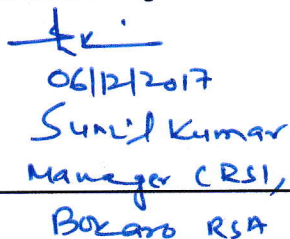 06/12/2017
Sunil Kumar
Manager (RSI,
Bokaro RSA